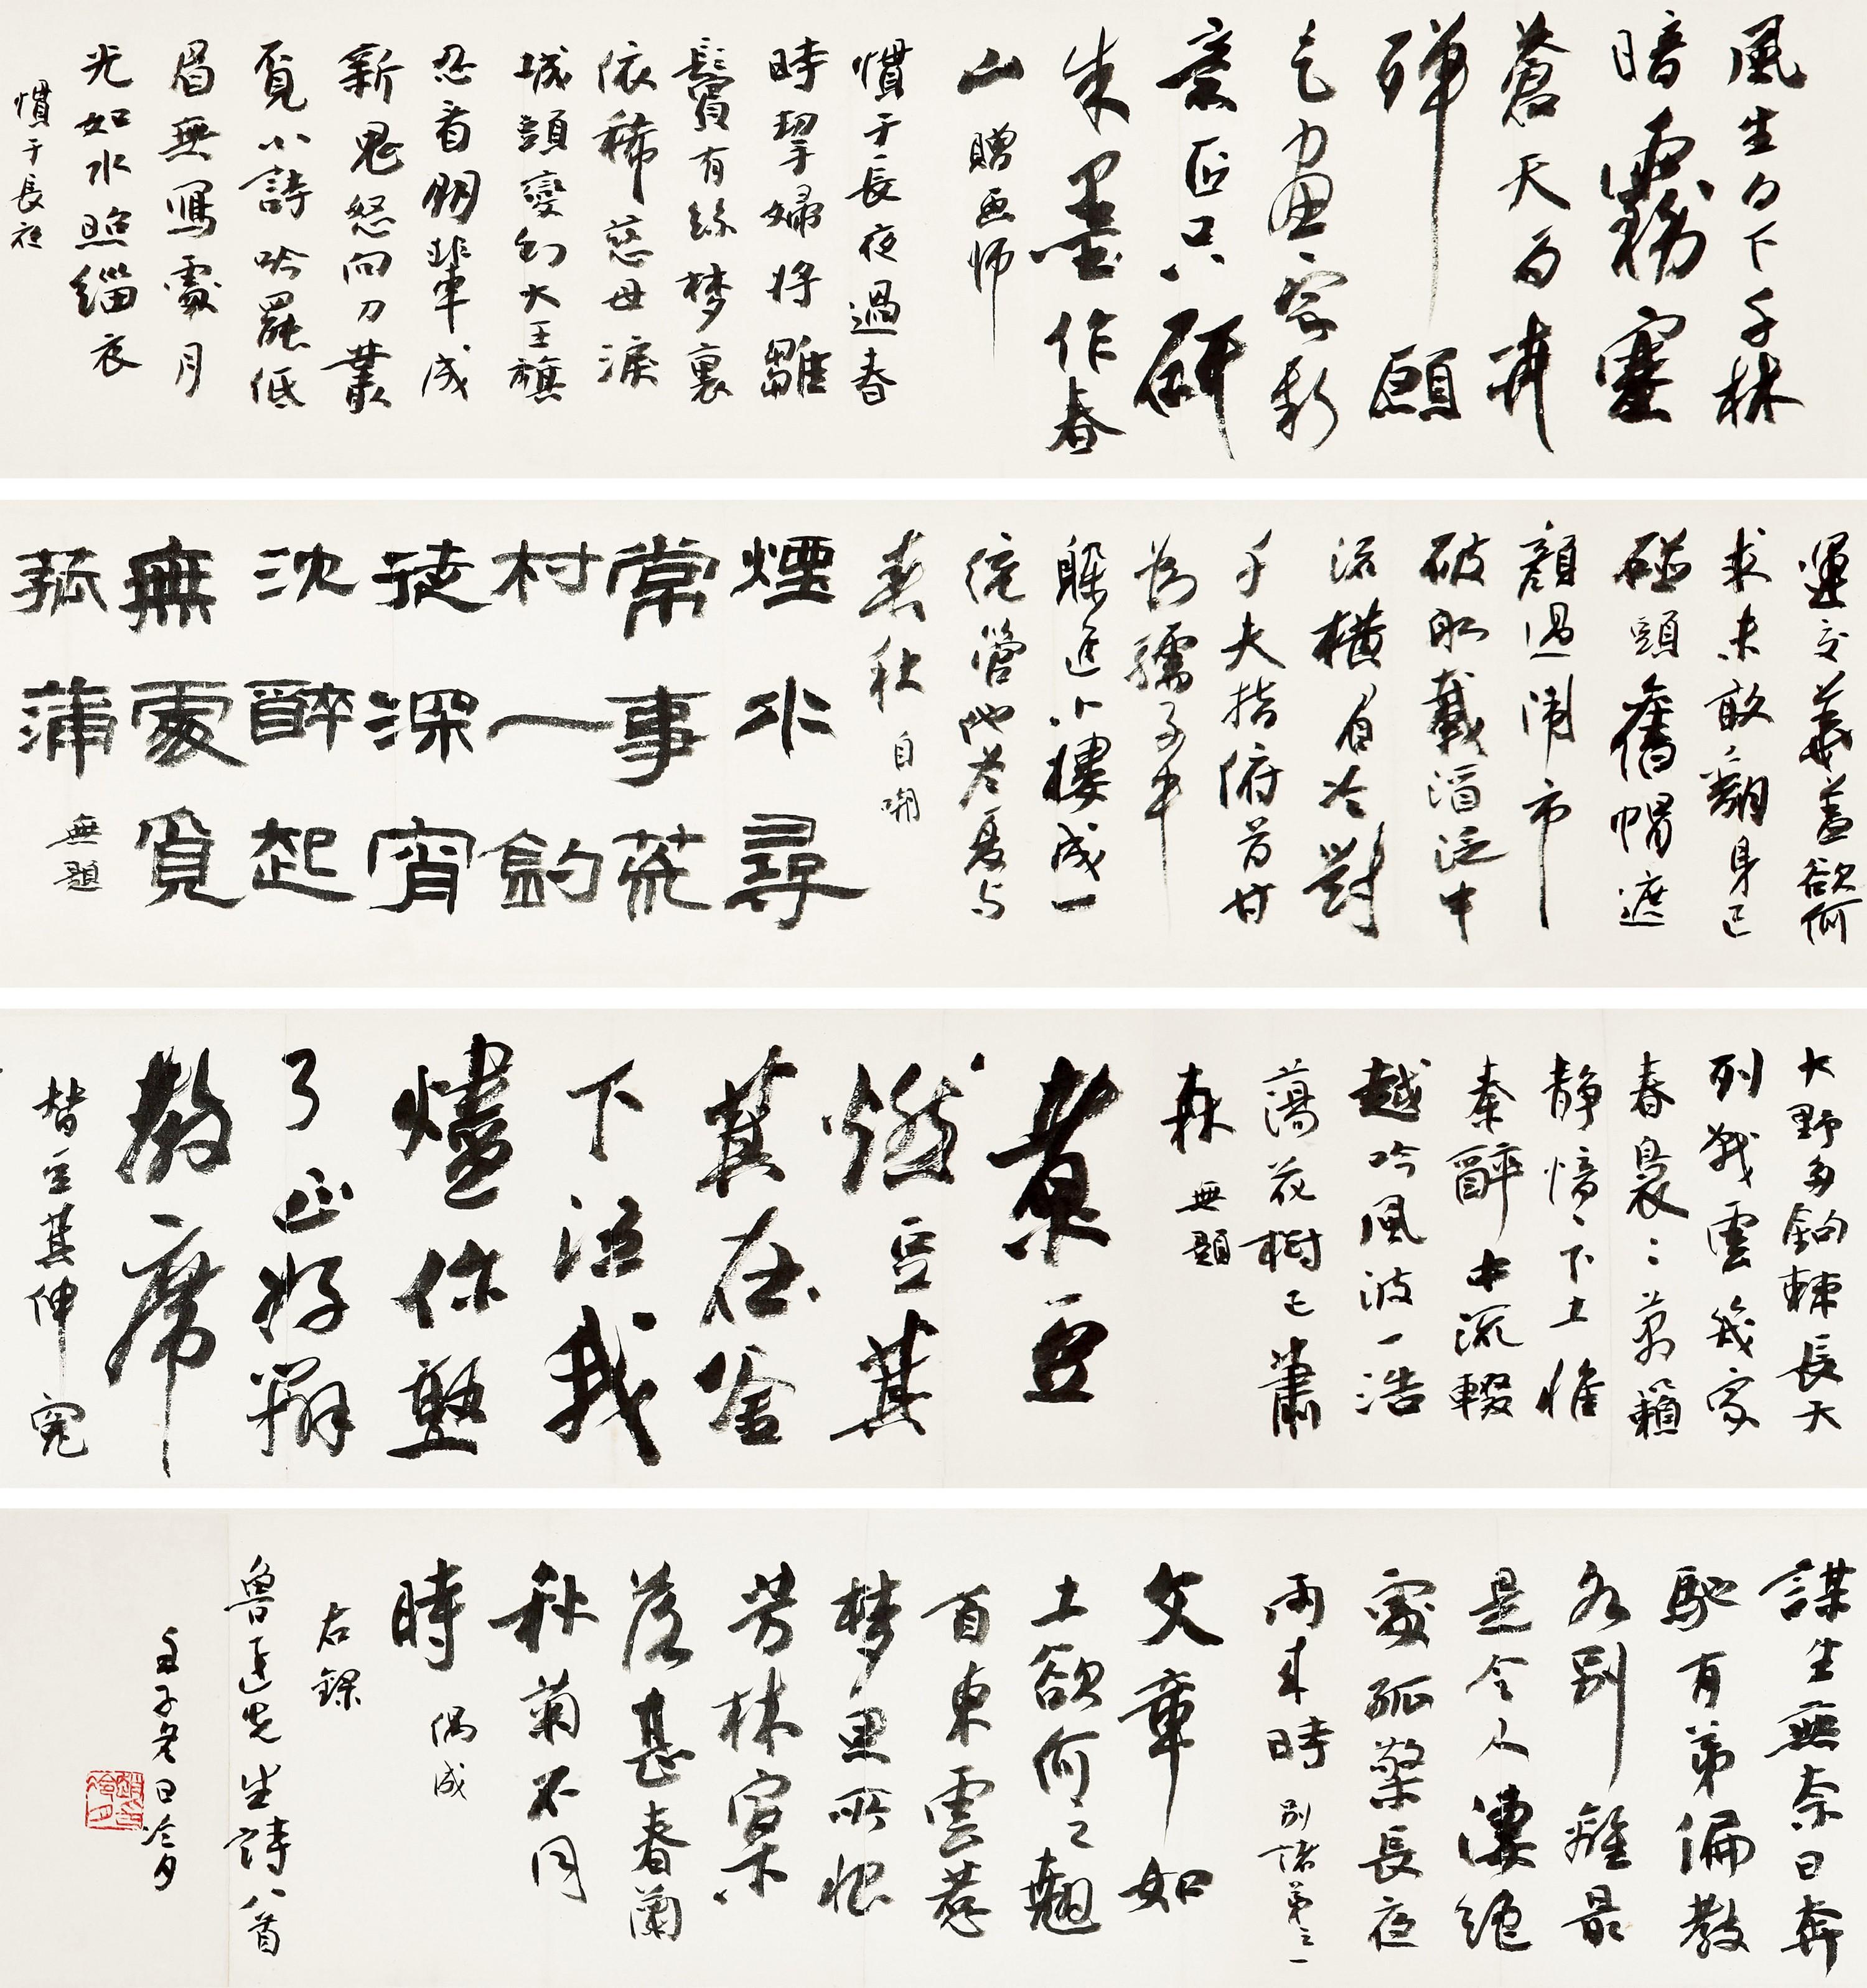 風生白下千林
暗霧塞
蒼天百卉
殫願
乞畫家新
意匠只研
朱墨作春
山 贈画師
慣于長夜過春
時挈婦將雛
鬢有絲夢裏
依稀慈母淚
城頭變幻大王旗
忍看朋輩成
新鬼怒向刀叢
覓小詩吟罷低
眉無寫處月
光如水照緇衣
慣于長夜
運交華蓋欲何
求未敢翻身已
碰頭舊帽遮
顏過鬧市
破船載酒泛中
流橫眉冷對
千夫指俯首甘
為孺子牛
躲進小樓成一
統管他冬夏与
春秋 自嘲
煙水尋
常事荒
村一釣
徒深宵
沈醉起
無處覓
菰蒲 無題
大野多鉤棘長天
列戰雲幾家
春裊〻萬籟
靜愔〻下土惟
秦醉中流輟
越吟風波一浩
蕩花樹已蕭
森 無題
煮豆
燃豆萁
萁在釜
下泣我
燼你熟
了正好辦
教席
替豆萁伸冤
謀生無奈日奔
馳有弟偏教
各別離最
是令人凄絕
處孤檠長夜
雨來時 別諸弟之一
文章如
土欲何之翹
首東雲惹
夢思所恨
芳林寥
落甚春蘭
秋菊不同
時 偶成
右錄
魯迅先生詩八首
壬子冬日冷月